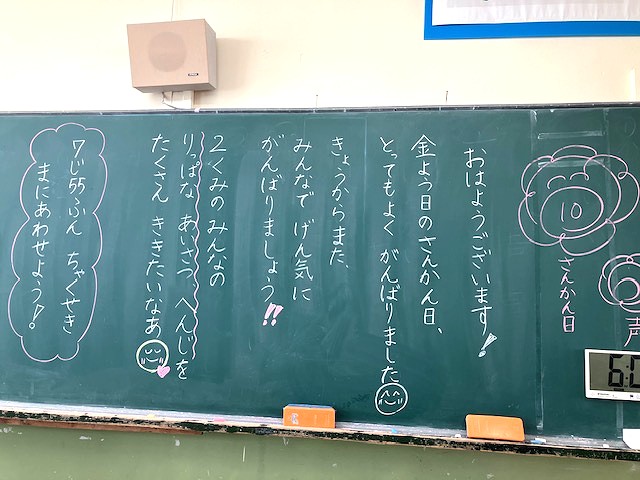 10
さんかん日
声
おはようございます!
金よう日のさんかん日、
とってもよく がんばりました
きょうからまた、
みんなで げん気に
がんばりましょう!!
2くみの みんなの
りっぱな あいさつ、へんじを
たくさん ききたいなあ
7じ55ふん ちゃくせき
まにあわせよう!